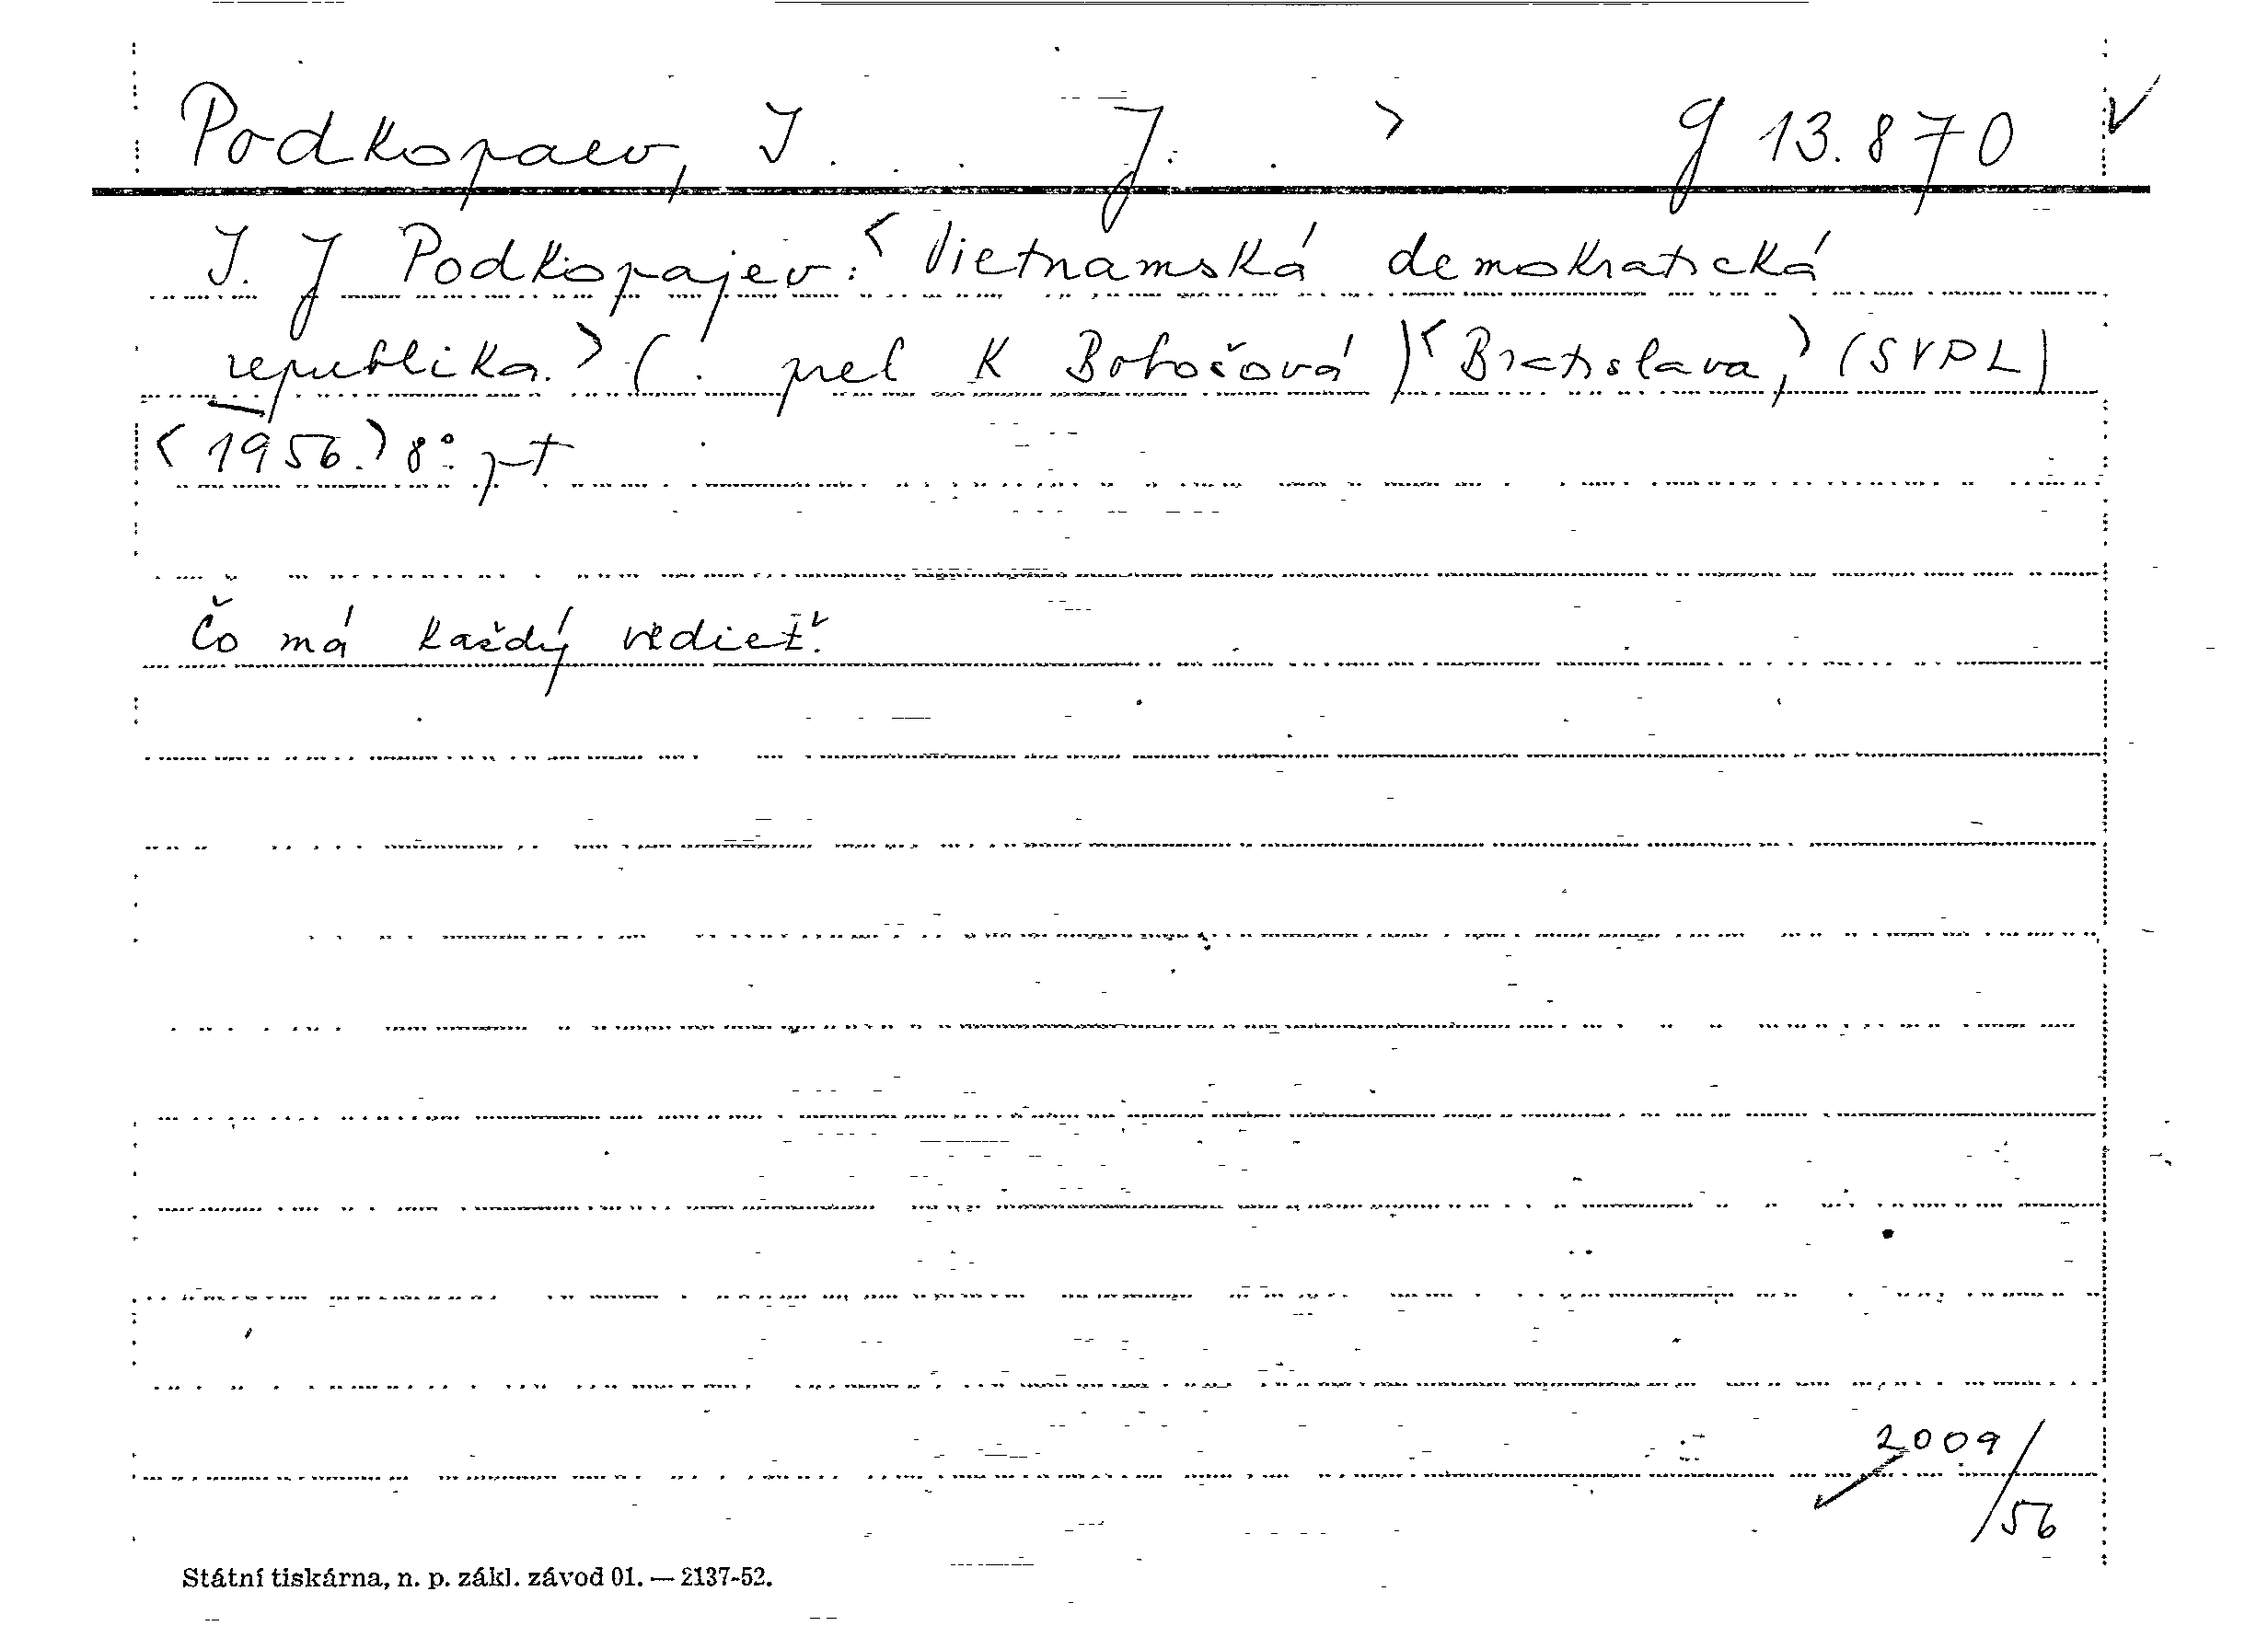 Podkopaev, I. . . J. . > g 13.870 √
I. J Podkopajev: <Vietnamská demokratická
republika.> (. prel K Bohošová) <Bratislava,> (SVPL)
<1956.> 8° pt
Čo má každý vedieť.
2009/
/56
Státní tiskárna, n. p. zákl. závod 01. — 2137-52.